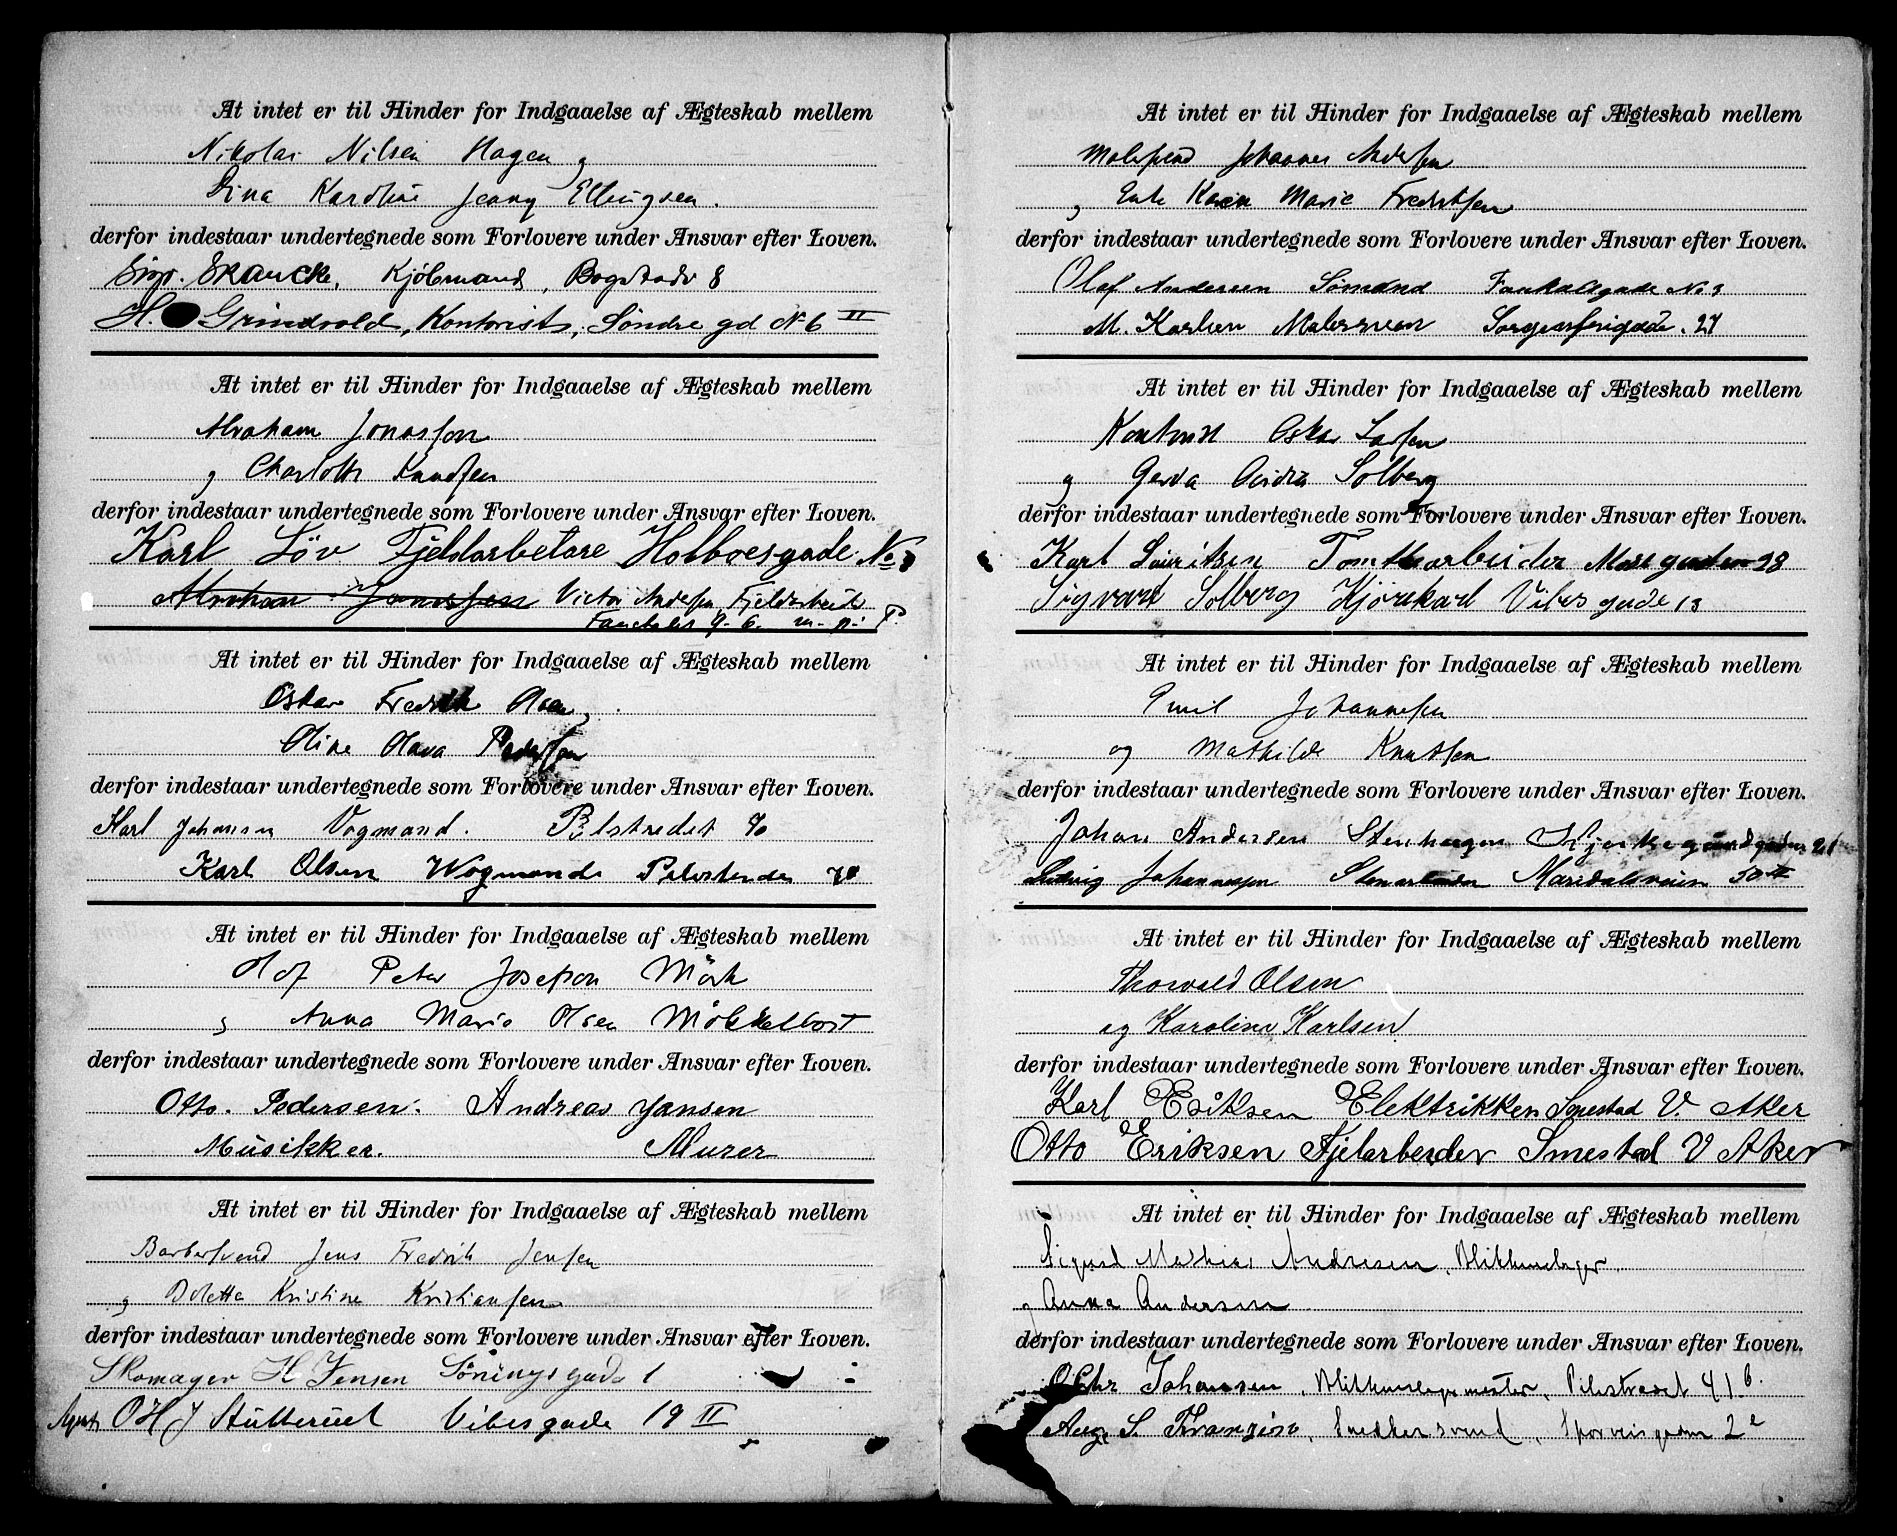 At intet er til Hinder for Indgaaelse af Ægteskab mellem
Nikolai Nilsen Hagen og
Lina Karoline Jenny Ellingsen.
derfor indestaar undertegnede som Forlovere under Ansvar efter Loven.
Skancke, Kjøbmand, Bogstadv 8
H. Grindvold, Kontorist, Søndre gd No 6 II
At intet er til Hinder for Indgaaelse af Ægteskab mellem
Abraham Jonassen
og Charlotte Knudsen
derfor indestaar undertegnede som Forlovere under Ansvar efter Loven.
Karl Löv Fjeldarbetare Holboesgade No
Abraham Jonassen Victor Andersen Fjeldarbeider
At intet er til Hinder for Indgaaelse af Ægteskab mellem
Oskar Fredrik Olsen
Oline Olava Pedersen
derfor indestaar undertegnede som Forlovere under Ansvar efter Loven.
Karl Johansen Vogmand. Pilstredet 70
Karl Olsen Wogmand Pilestredet 70
At intet er til Hinder for Indgaaelse af Ægteskab mellem
Olof Peter Josefson Mörk
og Anna Marie Olsen Mökkelbost
derfor indestaar undertegnede som Forlovere under Ansvar efter Loven.
Otto. Pedersen. Andreas Jansen
Musikker. Murer
At intet er til Hinder for Indgaaelse af Ægteskab mellem
Barbersvend Jens Fredrik Jensen
og Doletta Kristine Kristiansen
derfor indestaar undertegnede som Forlovere under Ansvar efter Loven.
Skomager H Jensen Söringsgade 1
Agent O H J Stutterud Vibesgade 19 II
At intet er til Hinder for Indgaaelse af Ægteskab mellem
Malersvend Johannes Andersen
og Enke Karen Marie Fredriksen
derfor indestaar undertegnede som Forlovere under Ansvar efter Loven.
Olaf Andersen Sømand Fauchaldsgade No 3
M. Karlsen Malersven Sorgenfrigade. 27
At intet er til Hinder for Indgaaelse af Ægteskab mellem
Kontorist Oskar Larsen
og Gerda Solberg
derfor indestaar undertegnede som Forlovere under Ansvar efter Loven.
Karl Lauritsen Tomtearbeider Mossegaden 28
Sigvart Solberg Kjørekarl Vibesgade 13
At intet er til Hinder for Indgaaelse af Ægteskab mellem
Emil Johannesen
og Mathilde Knutsen
derfor indestaar undertegnede som Forlovere under Ansvar efter Loven.
Johan Andersen Stenhugger Kjerkegaardgaden 21
Ludvig Johannessen Stenarbeider Maridalsveien 50
At intet er til Hinder for Indgaaelse af Ægteskab mellem
Thorvald Olsen
og Karoline Karlsen
derfor indestaar undertegnede som Forlovere under Ansvar efter Loven.
Karl Eriksen Elektrikker Smestad V. Aker
Otto Eriksen Fjelarbeider Smestad V Aker
At intet er til Hinder for Indgaaelse af Ægteskab mellem
Sigurd Mathias Andresen, Blikkenslager.
og Anna Andersen
derfor indestaar undertegnede som Forlovere under Ansvar efter Loven.
Johansen, Blikkenslagermester, Pilestrædet 41 b.
Aug. S. Franzson, Snedkersvend, Sporveisgaden 2 e